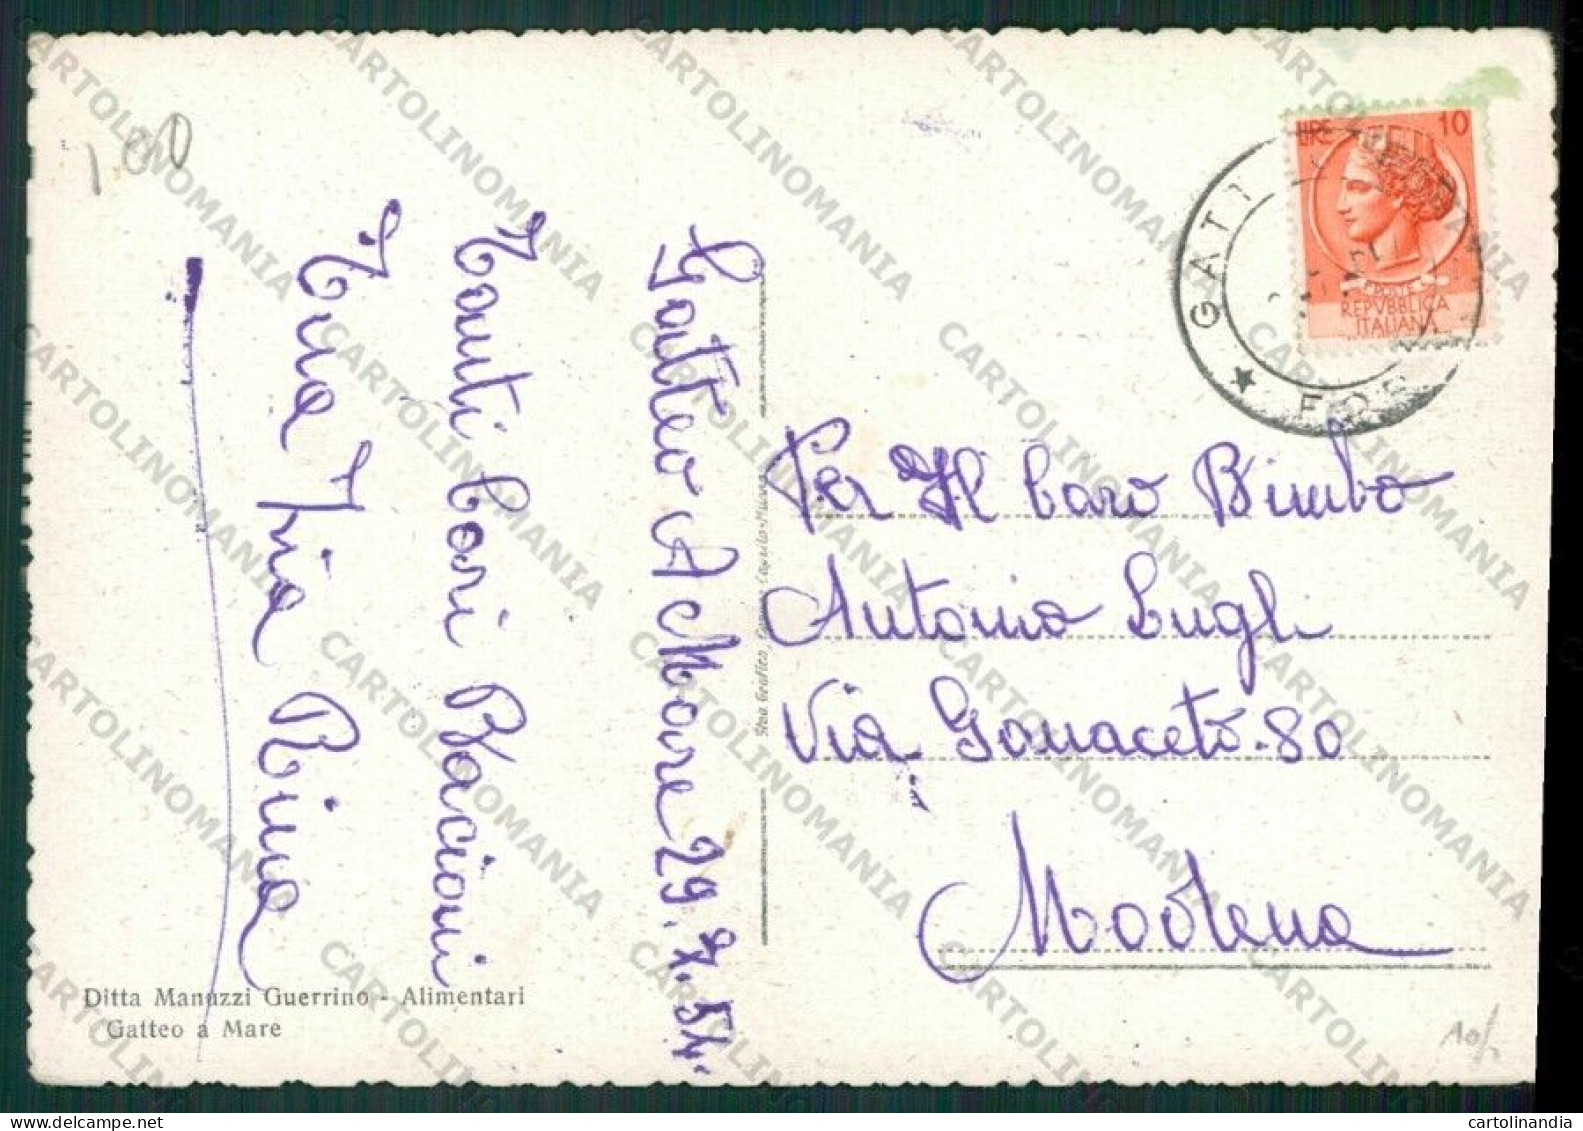 100
Gatteo A Mare 29.7.54.
Tanti Cari Bacioni
Tua Zia Rina
Per Il Caro Bimbo
Antonio Lugli
Via Ganaceto-80
Modena
LIRE 10
REPVBBLICA
ITALIANA
GATT
FOR
Ditta Manuzzi Guerrino - Alimentari
Gatteo a Mare
CARTOLINOMANIA
cartolinandia